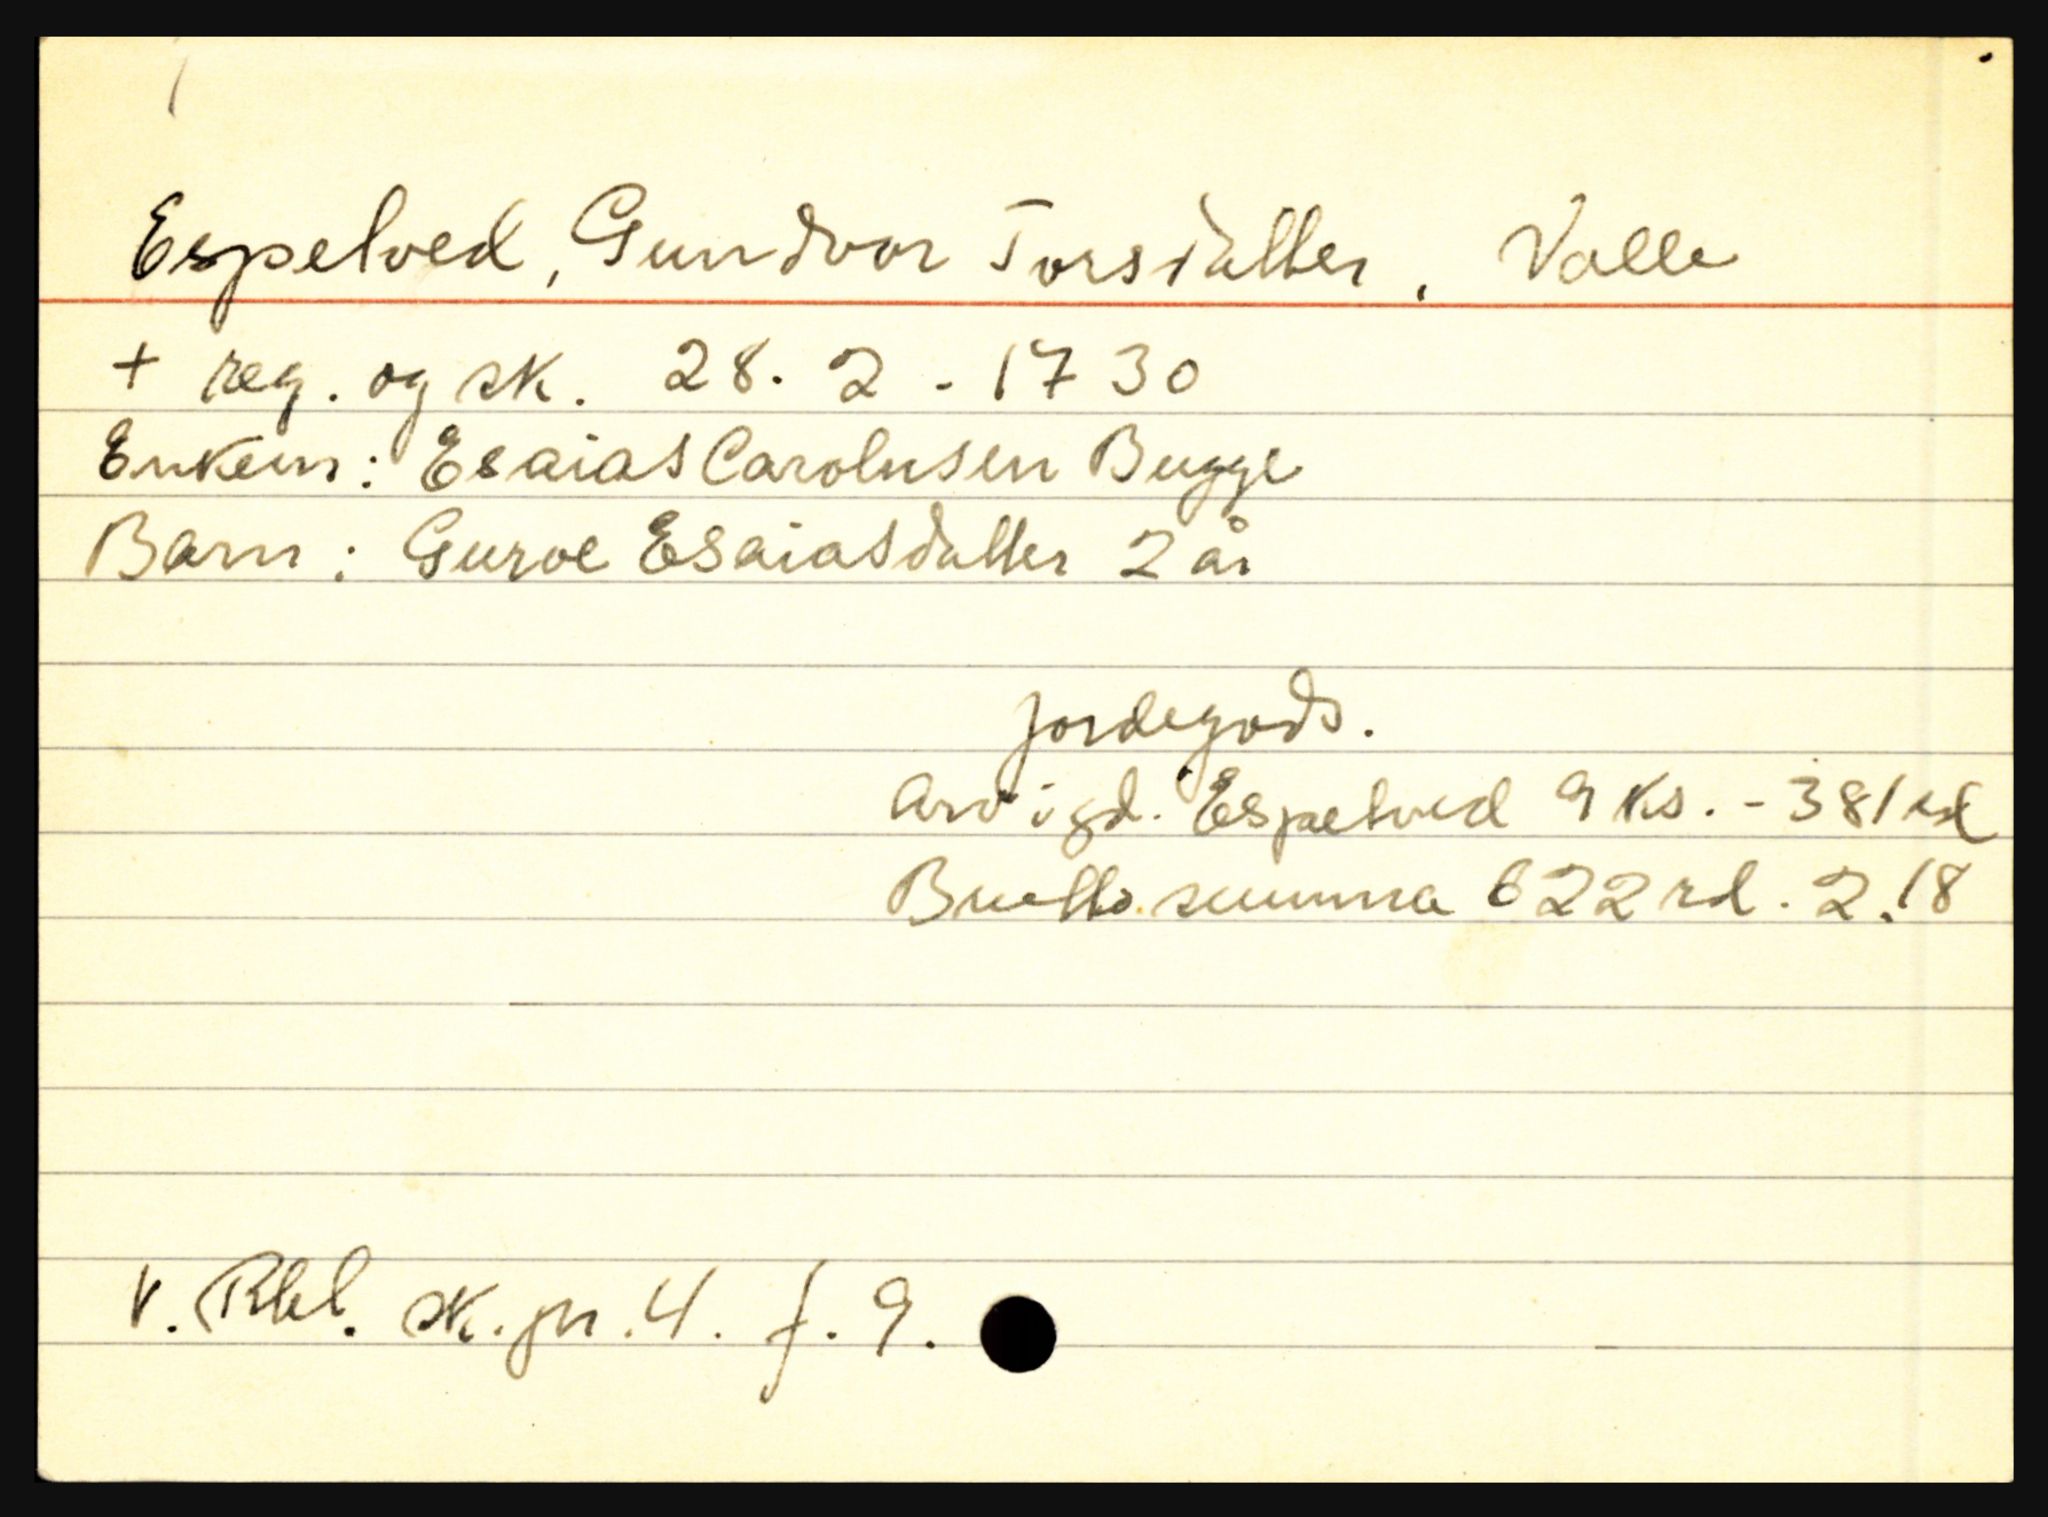 Espelved, Gundvor Torsdatter, Valle
+ reg. og sk. 28. 2 - 1730
Enkem: Esaias Carolusen Bugge
Barn: Guroe Esaiasdatter 2 år
Jordegods.
Arv i gd. Espetved 9 ks. - 381 rd
Brutto summa 622 rd. 2.18
V. Rbl. sk. pr. 4. f. 9.